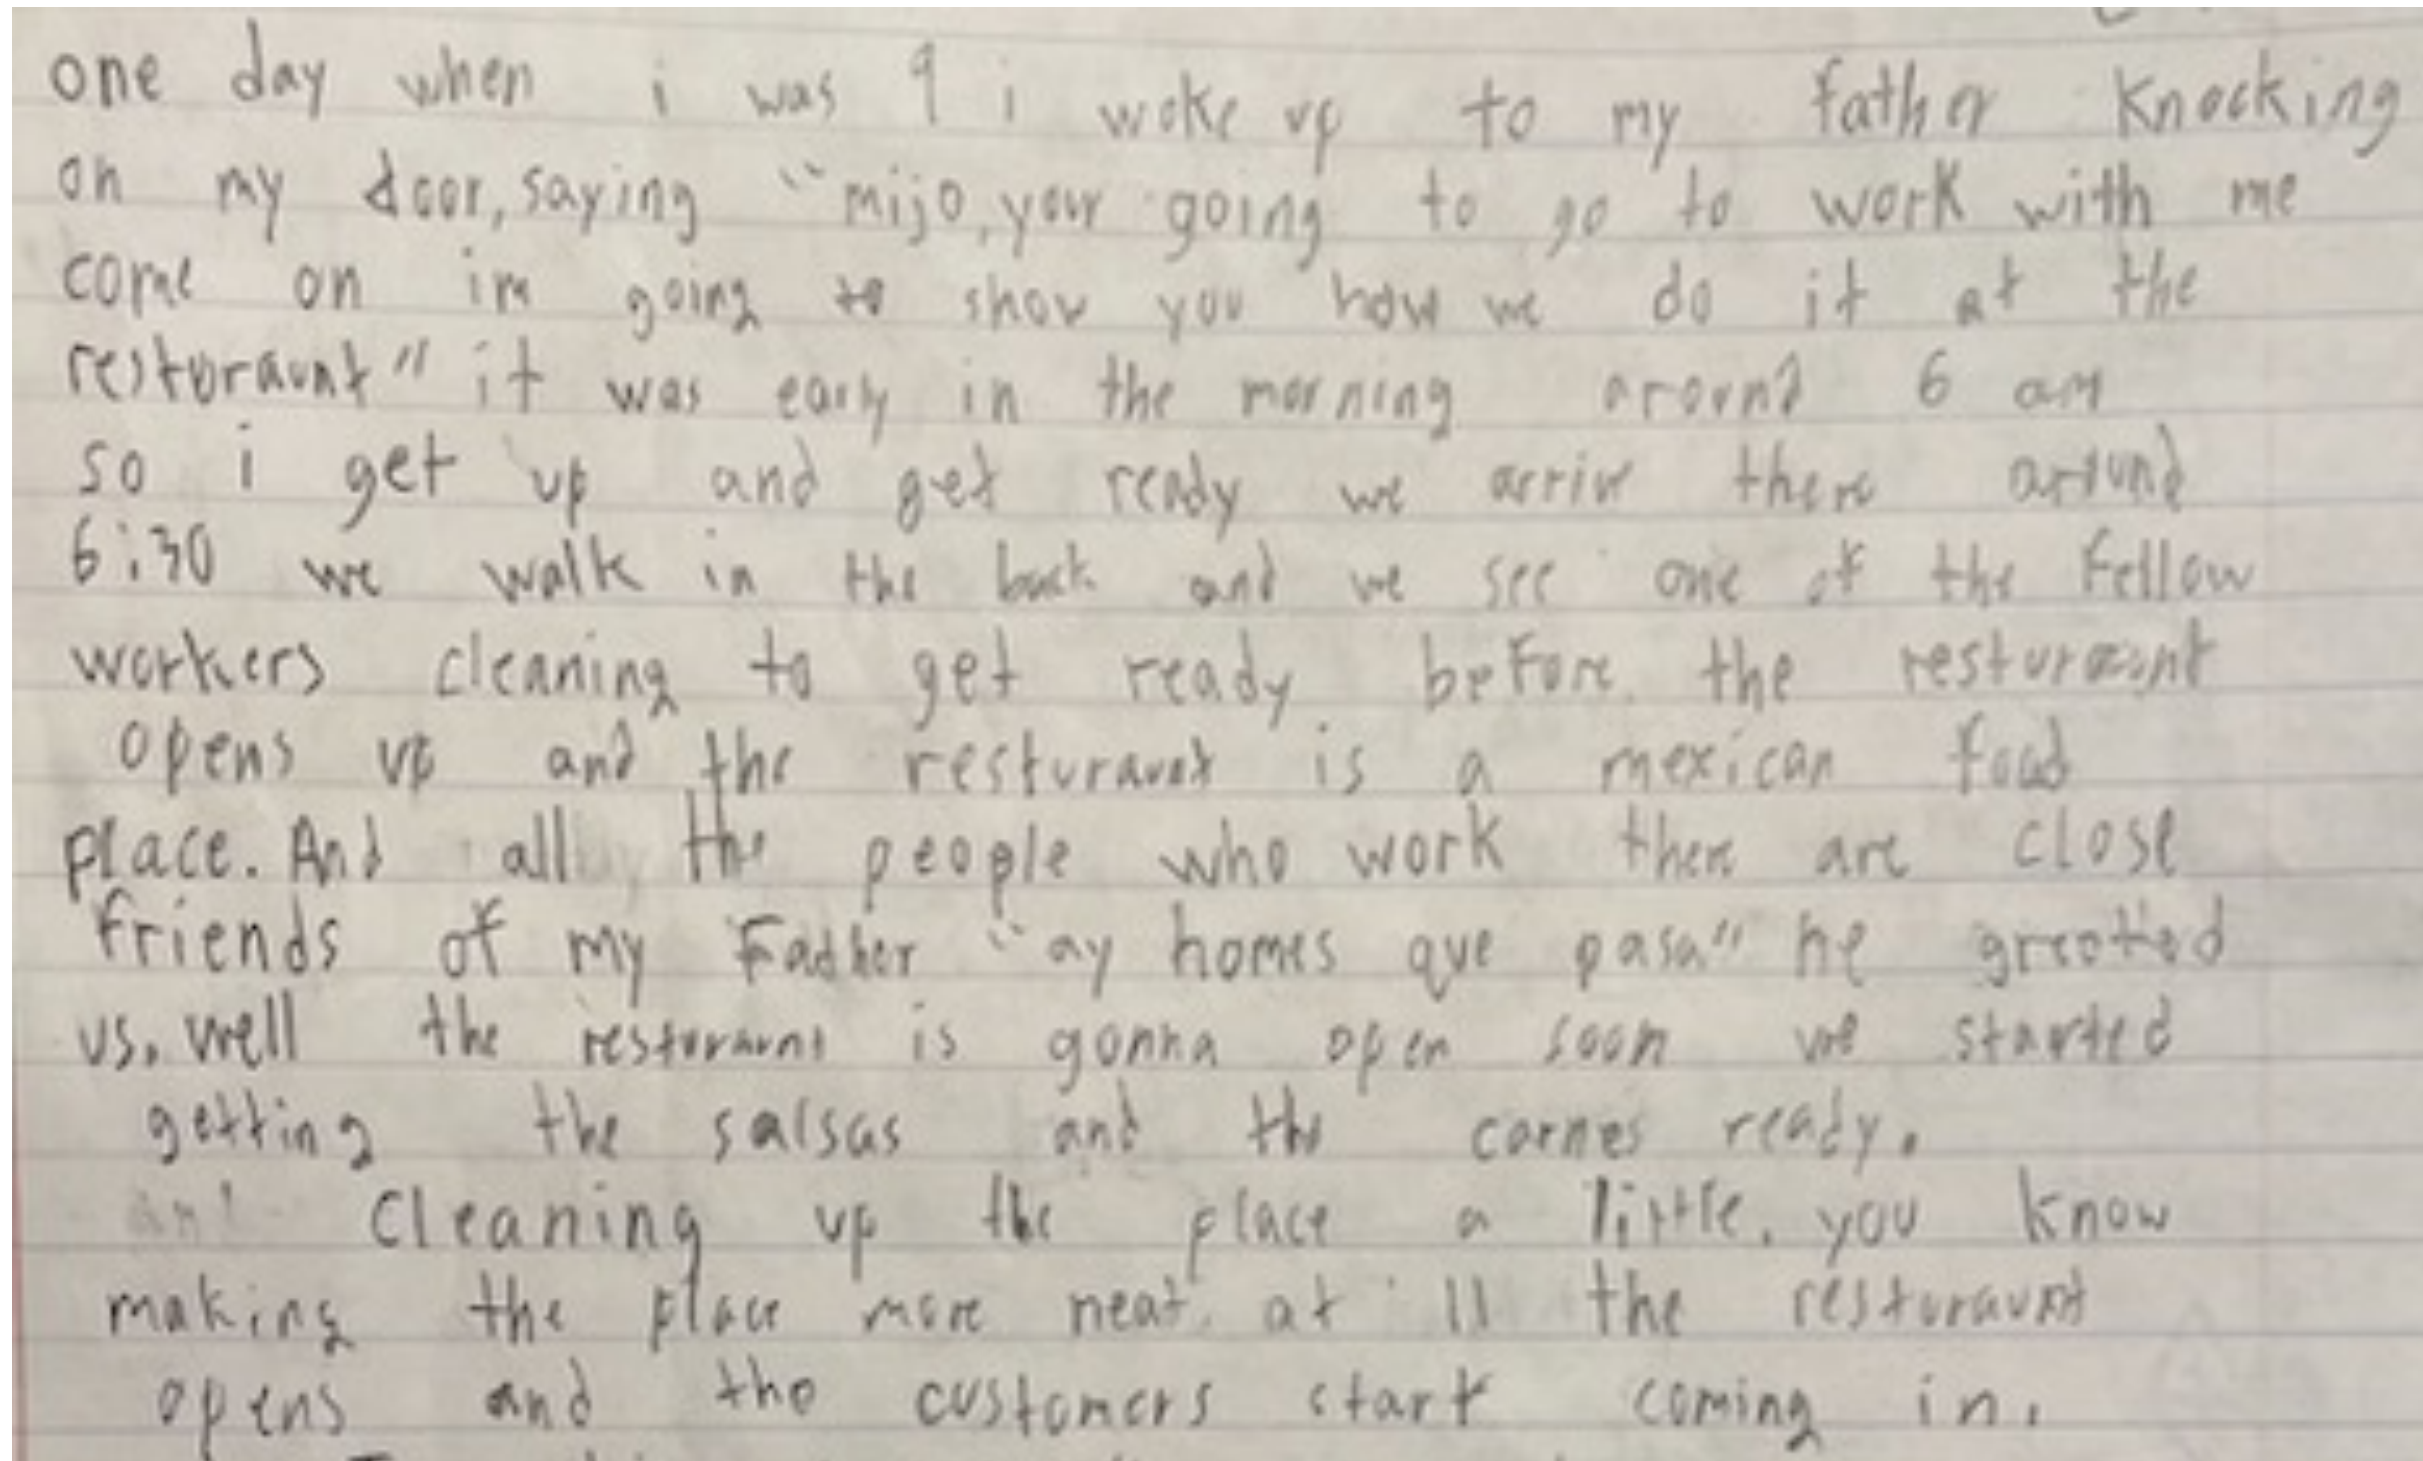 one day when i was 9 i woke up to my father knocking
on my door, saying "mijo, your going to go to work with me
come on im going to show you how we do it at the
resturaunt" it was early in the morning around 6 am
so i get up and get ready we arrive there around
6:30 we walk in the back and we see one of the fellow
workers cleaning to get ready before the resturaunt
opens up and the resturaunt is a mexican food
place. And all the people who work there are close
friends of my Father "ay homes que pasa" he greetted
us. well the resturaunt is gonna open soon we started
getting the salsas and the carnes ready.
Cleaning up the place a little, you know
making the place more neat. at 11 the resturaunt
opens and the customers start coming in.